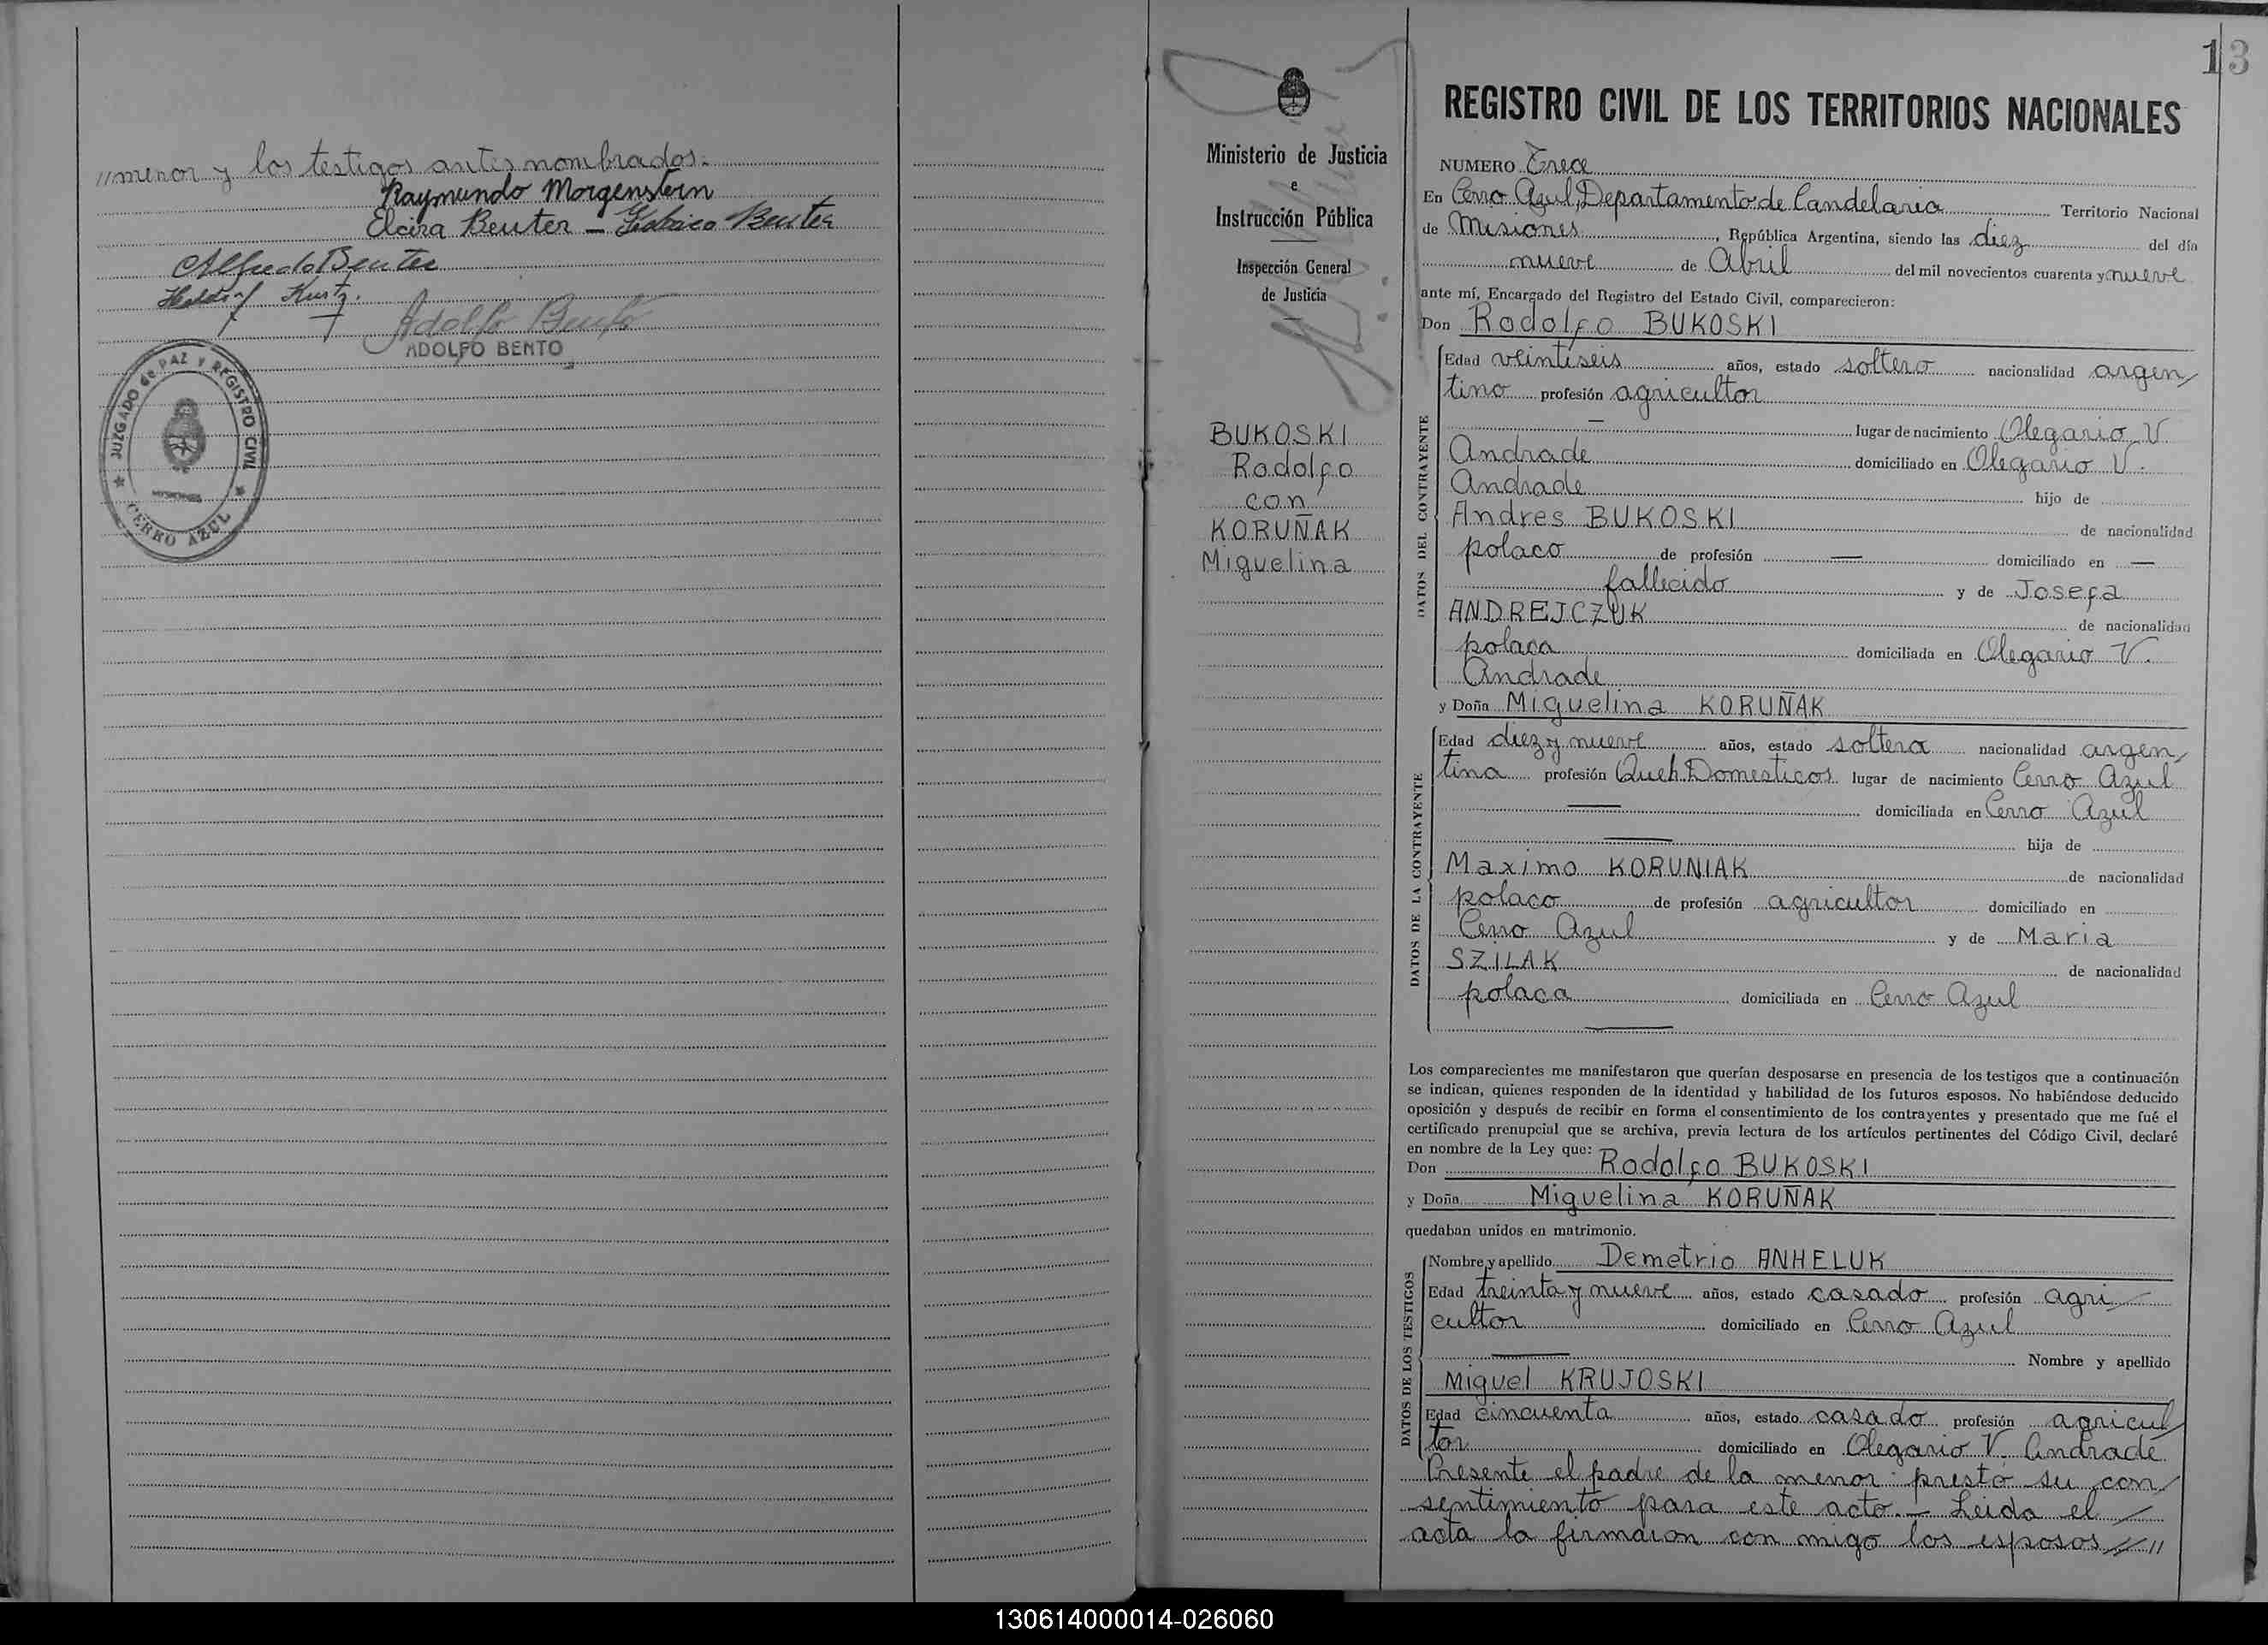 //menor y los testigos antes nombrados.
Raymundo Morgenstern
Elcira Beuter — Beuter
Alfredo Beuter
Kurtz.
Adolfo Bento
ADOLFO BENTO
JUZGADO de PAZ y REGISTRO CIVIL
MISIONES
CERRO AZUL
13
Ministerio de Justicia
e
Instrucción Pública
Inspección General
de Justicia
BUKOSKI
Rodolfo
con
KORUÑAK
Miguelina
REGISTRO CIVIL DE LOS TERRITORIOS NACIONALES
NUMERO Trece
En Cerro Azul, Departamento de Candelaria Territorio Nacional
de Misiones, República Argentina, siendo las diez del día
nueve de Abril del mil novecientos cuarenta y nueve
ante mí, Encargado del Registro del Estado Civil, comparecieron:
Don Rodolfo BUKOSKI
DATOS DEL CONTRAYENTE
Edad veintiseis años, estado soltero nacionalidad argen/
tino profesión agricultor
— lugar de nacimiento Olegario V.
Andrade domiciliado en Olegario V.
Andrade hijo de
Andres BUKOSKI de nacionalidad
polaco de profesión — domiciliado en —
fallecido y de Josefa
ANDREJCZUK de nacionalidad
polaca domiciliada en Olegario V.
Andrade
y Doña Miguelina KORUÑAK
DATOS DE LA CONTRAYENTE
Edad diez y nueve años, estado soltera nacionalidad argen/
tina profesión Queh. Domesticos lugar de nacimiento Cerro Azul
— domiciliada en Cerro Azul
— hija de
Maximo KORUNIAK de nacionalidad
polaco de profesión agricultor domiciliado en
Cerro Azul y de Maria
SZILAK de nacionalidad
polaca domiciliada en Cerro Azul
—
Los comparecientes me manifestaron que querían desposarse en presencia de los testigos que a continuación
se indican, quienes responden de la identidad y habilidad de los futuros esposos. No habiéndose deducido
oposición y después de recibir en forma el consentimiento de los contrayentes y presentado que me fué el
certificado prenupcial que se archiva, previa lectura de los artículos pertinentes del Código Civil, declaré
en nombre de la Ley que:
Don Rodolfo BUKOSKI
y Doña Miguelina KORUÑAK
quedaban unidos en matrimonio.
DATOS DE LOS TESTIGOS
Nombre y apellido Demetrio ANHELUK
Edad treinta y nueve años, estado casado profesión agri/
cultor domiciliado en Cerro Azul
— Nombre y apellido
Miguel KRUJOSKI
Edad cincuenta años, estado casado profesión agricul/
tor domiciliado en Olegario V. Andrade
Presente el padre de la menor: prestó su con/
sentimiento para este acto.— Leida el /
acta la firmaron con migo los esposos //
130614000014-026060